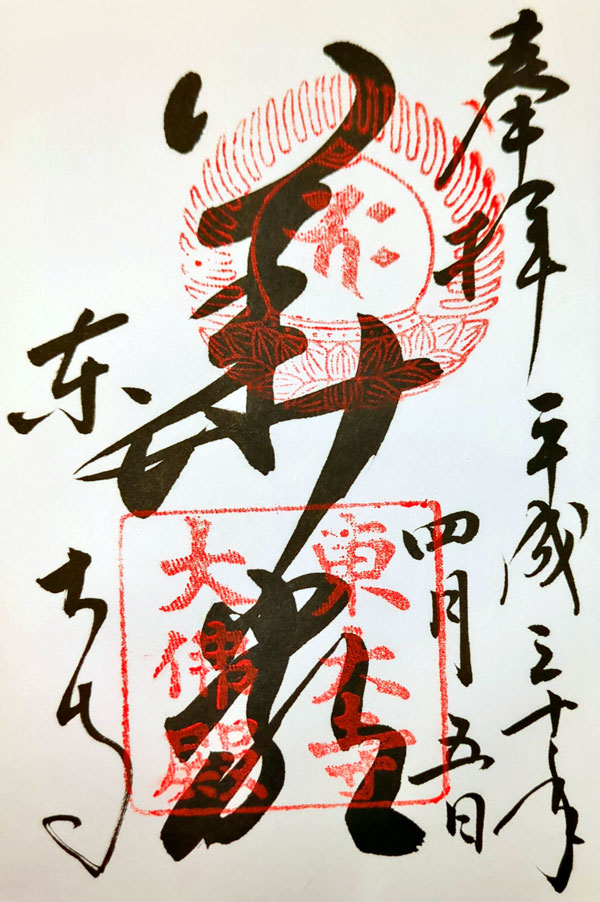 奉拝 平成三十年
四月五日
華厳
東大寺
東大寺
大佛殿